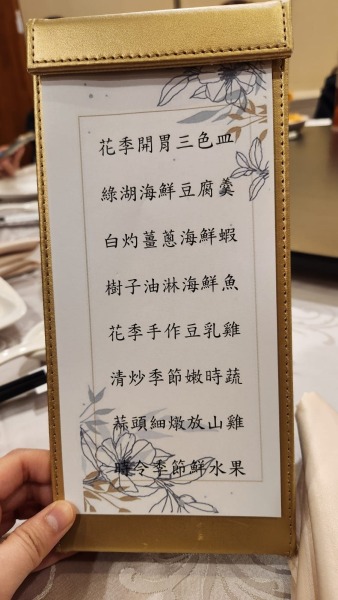 花季開胃三色皿
綠湖海鮮豆腐羹
白灼薑蔥海鮮蝦
樹子油淋海鮮魚
花季手作豆乳雞
清炒季節嫩時蔬
蒜頭細燉放山雞
時令季節鮮水果